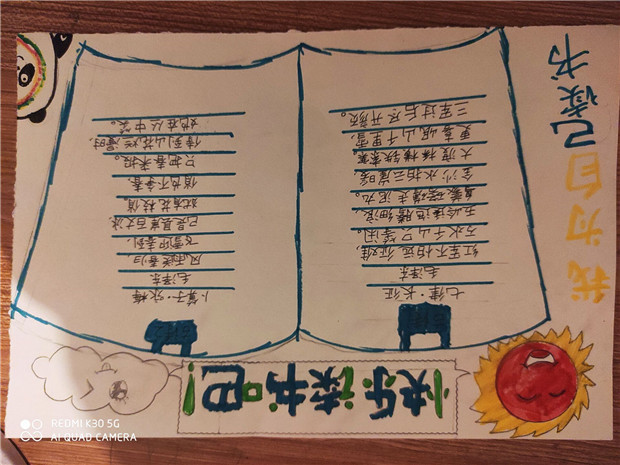 快乐读书吧!
七律·长征
毛泽东
红军不怕远征难,
万水千山只等闲。
五岭逶迤腾细浪,
乌蒙磅礴走泥丸。
金沙水拍云崖暖
大渡桥横铁索寒。
更喜岷山千里雪,
三军过后尽开颜。
卜算子·咏梅
毛泽东
风雨送春归
飞雪迎春到,
已是悬崖百丈冰,
犹有花枝俏
俏也不争春
只把春来报。
待到山花烂漫时,
她在丛中笑。
我为自己读书
REDMI K30 5G
AI QUAD CAMERA